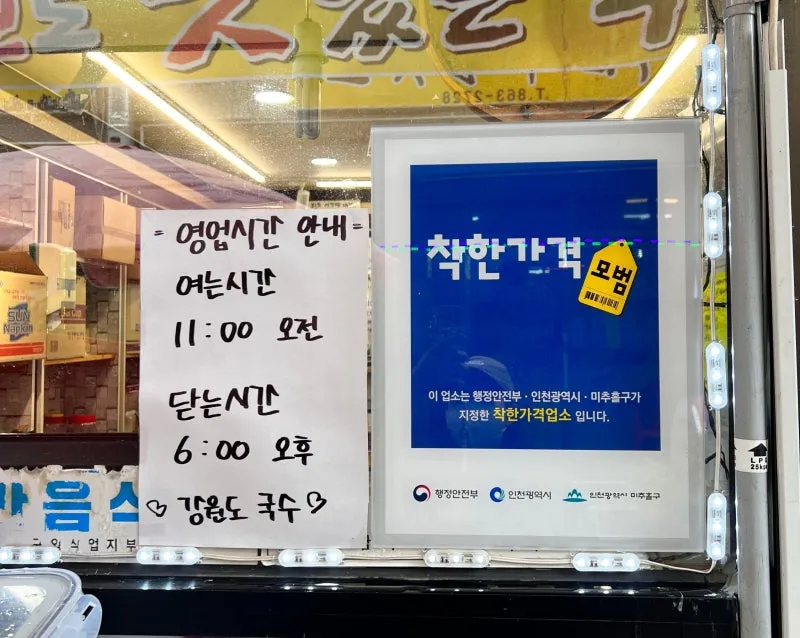 T.863-2728
= 영업시간 안내 =
여는시간
11:00 오전
닫는시간
6:00 오후
♡ 강원도 국수 ♡
착한가격
모범
이 업소는 행정안전부 · 인천광역시 · 미추홀구가
지정한 착한가격업소 입니다.
행정안전부
인천광역시
인천광역시 미추홀구
SUN
Napkin
음식
25kg